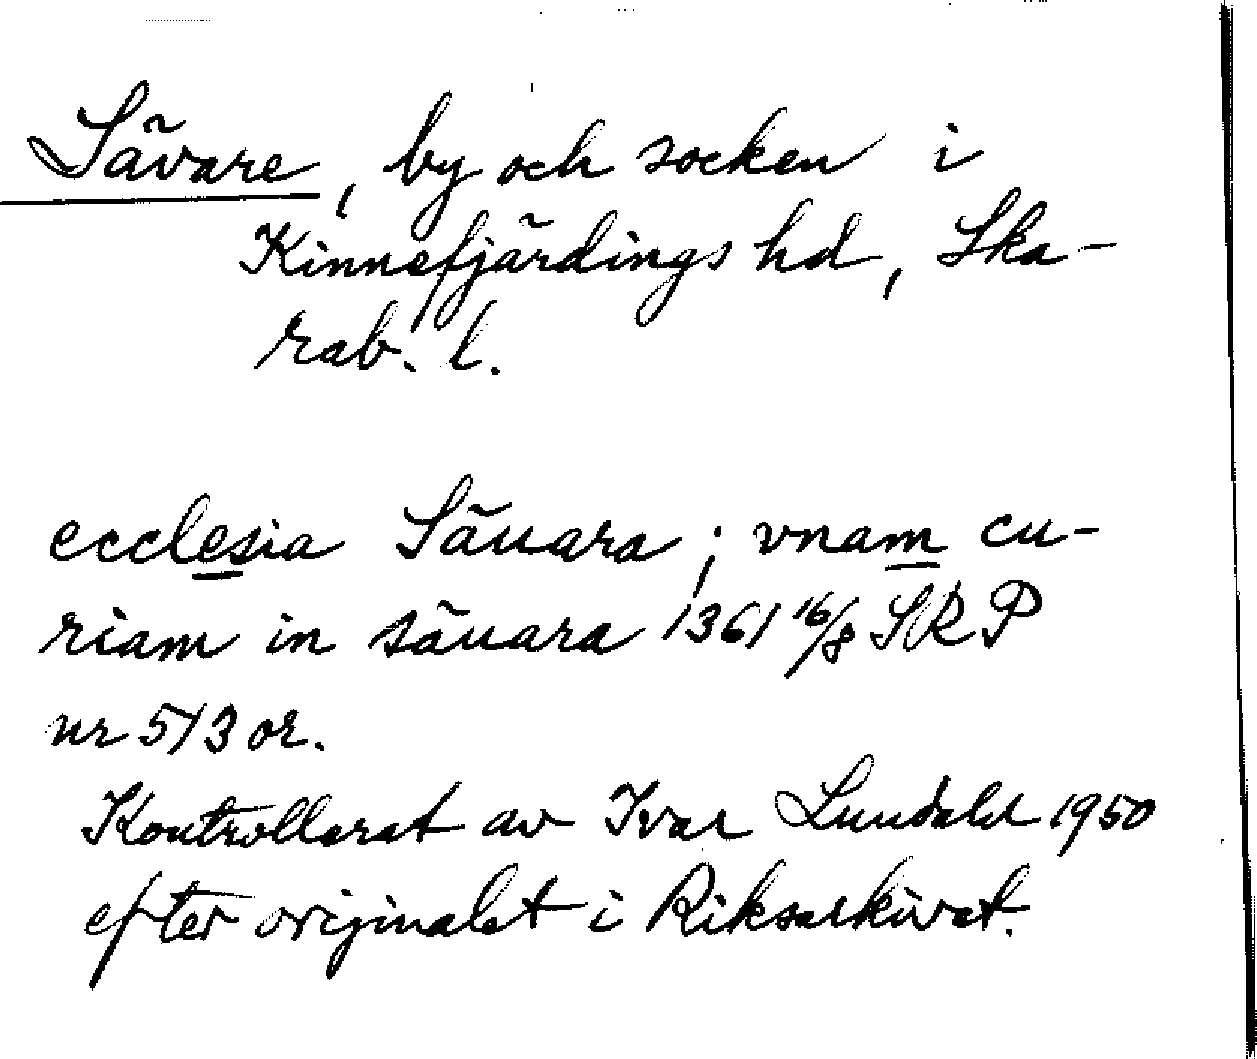 Sävare, by och socken i
Kinnefjärdings hd, Ska-
rab. l.
ecclesia Säuara; vnam cu-
riam in säuara 1361 16/8 SRP
nr 513 or.
Kontrollerat av Ivar Lundahl 1950
efter originalet i Riksarkivet.